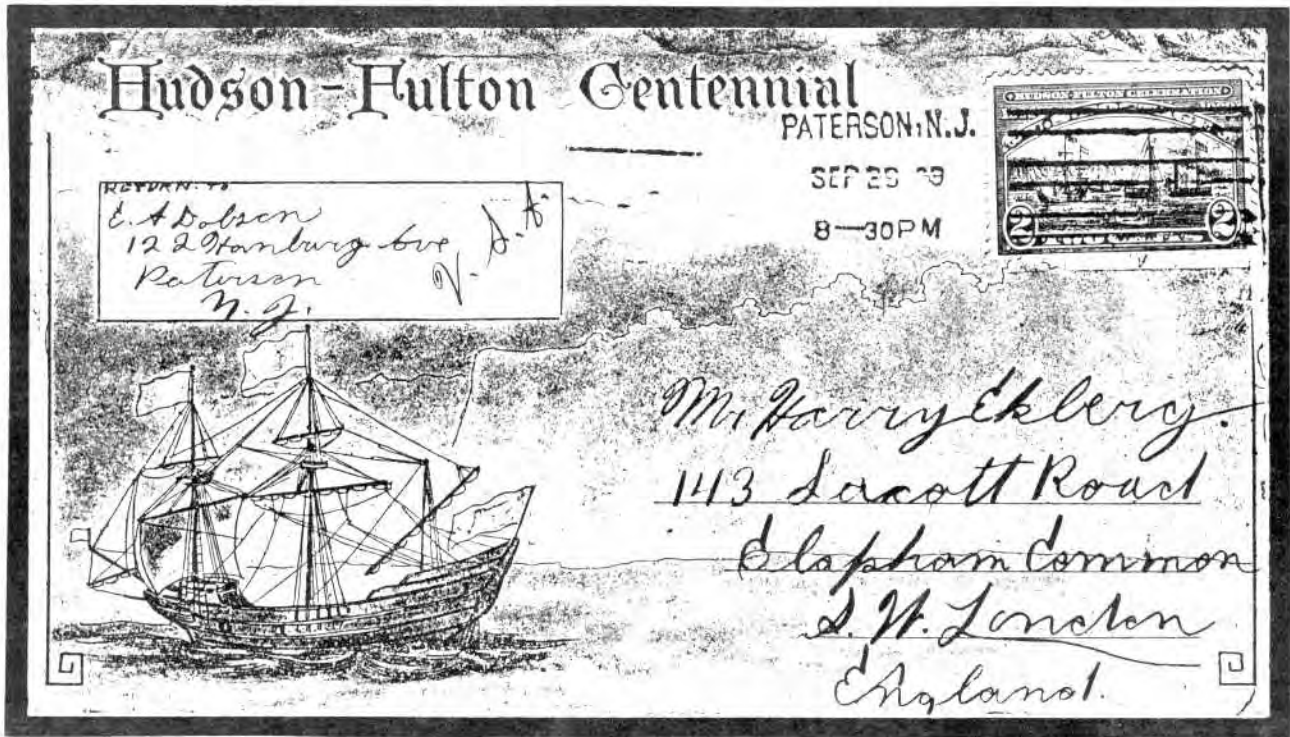 Hudson-Fulton Centennial
PATERSON, N.J.
SEP 29 09
8—30PM
HUDSON-FULTON CELEBRATION
2 2
RETURN TO
E. A Dobsen
122 Hamburg Ave
Paterson
N. J.
U. S. A.
Mr Harry Ekberg
143 Road
Clapham Common
S. W. London
England.